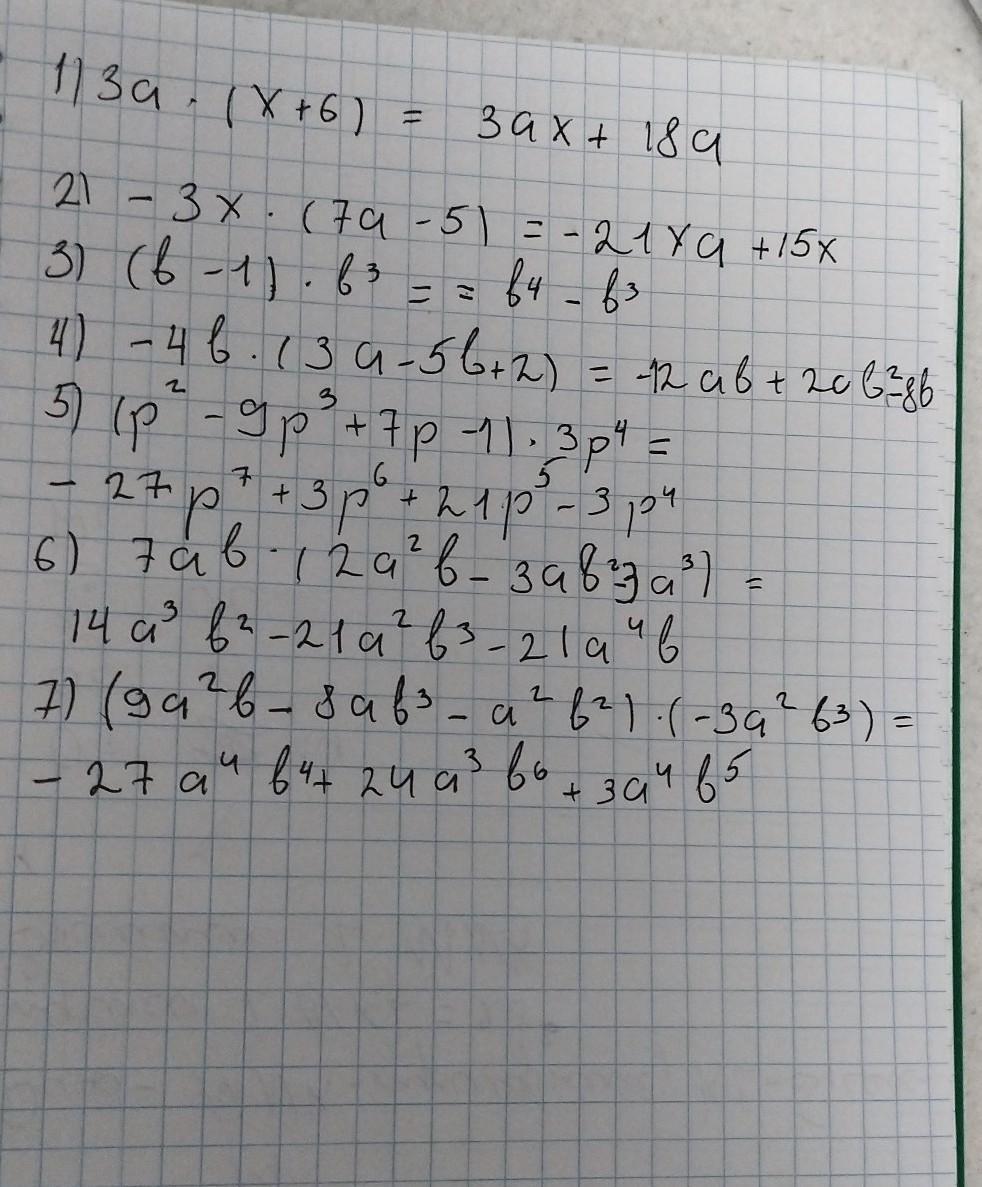 1) 3a · (x+6) = 3ax + 18a
2) - 3x · (7a - 5) = -21xa + 15x
3) (b - 1) · b³ = = b⁴ - b³
4) -4b · (3a - 5b + 2) = -12ab + 20b² - 8b
5) (p² - 9p³ + 7p - 1) · 3p⁴ =
- 27p⁷ + 3p⁶ + 21p⁵ - 3p⁴
6) 7ab · (2a²b - 3ab² - 3a³) =
14a³b² - 21a²b³ - 21a⁴b
7) (9a²b - 8ab³ - a²b²) · (-3a²b³) =
- 27a⁴b⁴ + 24a³b⁶ + 3a⁴b⁵